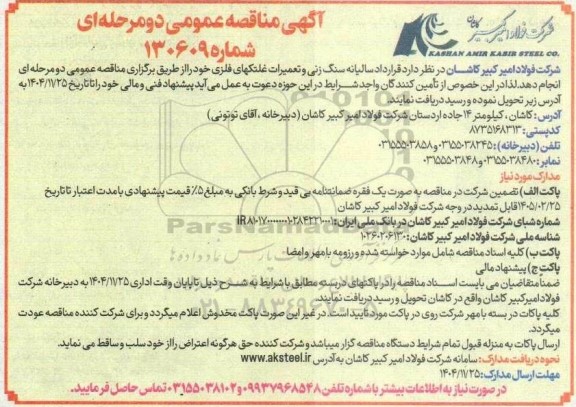 آگهی مناقصه عمومی دو مرحله ای
شماره ۱۳۰۶۰۹
شرکت فولاد امیر کبیر کاشان
KASHAN AMIR KABIR STEEL CO.
شرکت فولاد امیر کبیر کاشان در نظر دارد قرارداد سالیانه سنگ زنی و تعمیرات غلتکهای فلزی خود را از طریق برگزاری مناقصه عمومی دو مرحله ای
انجام دهد. لذا در این خصوص از تأمین کنندگان واجد شرایط در این حوزه دعوت به عمل می آید پیشنهاد فنی و مالی خود را تا تاریخ ۱۴۰۴/۱۱/۲۵ به
آدرس زیر تحویل نموده و رسید دریافت نمایند.
آدرس: کاشان، کیلومتر ۱۴ جاده اردستان شرکت فولاد امیر کبیر کاشان (دبیرخانه، آقای توتونی)
کدپستی: ۸۷۳۵۱۶۸۳۱۳
تلفن (دبیرخانه): ۰۳۱۵۵۵۰۳۸۲۴۵ و ۰۳۱۵۵۵۰۳۸۵۸
نمابر: ۰۳۱۵۵۵۰۳۸۴۸۰ و ۰۳۱۵۵۵۰۳۸۴۸
مدارک مورد نیاز
پاکت الف) تضمین شرکت در مناقصه به صورت یک فقره ضمانتنامه بی قید و شرط بانکی به مبلغ ۵٪ قیمت پیشنهادی با مدت اعتبار تا تاریخ
۱۴۰۵/۰۲/۲۵ قابل تمدید در وجه شرکت فولاد امیر کبیر کاشان
شماره شبای شرکت فولاد امیر کبیر کاشان در بانک ملی ایران:
شناسه ملی شرکت فولاد امیر کبیر کاشان: ۱۰۲۶۰۲۰۶۱۳۰
پاکت ب) کلیه اسناد مناقصه شامل موارد خواسته شده و رزومه با مهر و امضا
پاکت ج) پیشنهاد مالی
ضمنا متقاضیان می بایست اسناد مناقصه را در پاکتهای دربسته و مطابق با شرایط به شرح ذیل تا پایان وقت اداری ۱۴۰۴/۱۱/۲۵ به دبیرخانه شرکت
فولاد امیر کبیر کاشان واقع در کاشان تحویل و رسید دریافت نمایند.
کلیه پاکات در بسته با مهر شرکت روی در پاکت مورد تأیید است در غیر این صورت پاکت مخدوش اعلام میگردد و برای شرکت کننده مناقصه عودت
میگردد.
ارسال پاکات به منزله قبول تمام شرایط دستگاه مناقصه گزار میباشد و شرکت کننده حق هرگونه اعتراض را از خود سلب و ساقط می نماید.
نحوه دریافت مدارک: سامانه شرکت فولاد امیر کبیر کاشان به آدرس www.aksteel.ir
مهلت ارسال مدارک: ۱۴۰۴/۱۱/۲۵
در صورت نیاز به اطلاعات بیشتر با شماره تلفن ۰۹۹۳۷۹۶۸۵۴۸ و ۰۳۱۵۵۵۰۳۸۱۰۲ تماس حاصل فرمایید.
ParsNamadData
۰۲۱-۸۸۳۴۹۶۷۰